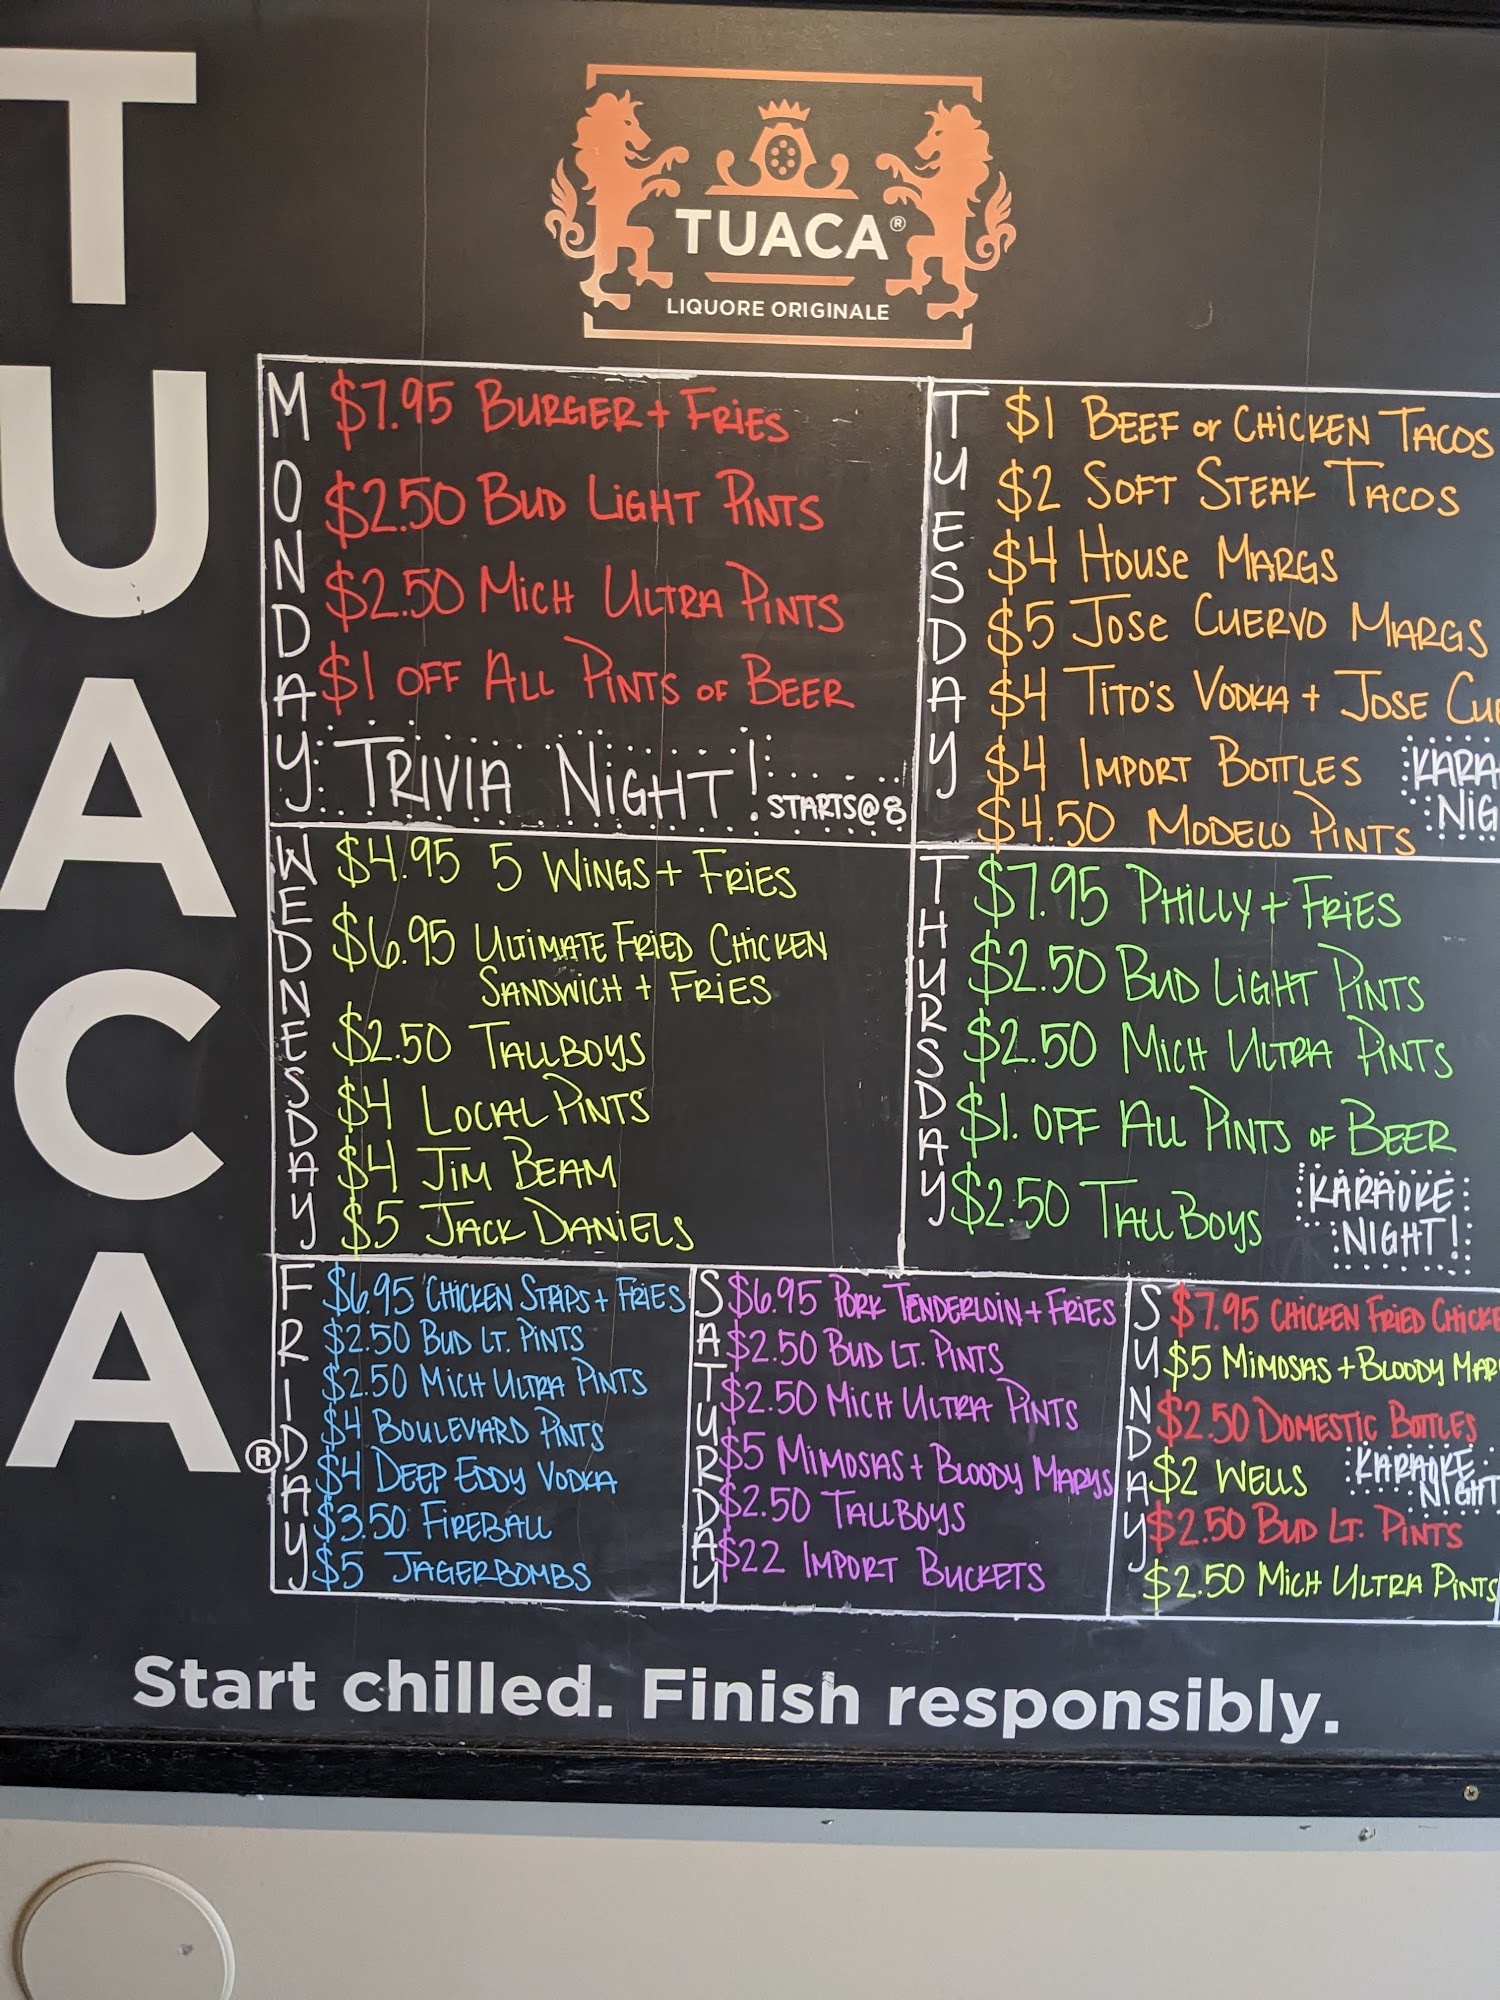 TUACA®
TUACA®
LIQUORE ORIGINALE
MONDAY
$7.95 BURGER + FRIES
$2.50 BUD LIGHT PINTS
$2.50 MICH ULTRA PINTS
$1 OFF ALL PINTS OF BEER
TRIVIA NIGHT! STARTS@8
TUESDAY
$1 BEEF or CHICKEN TACOS
$2 SOFT STEAK TACOS
$4 HOUSE MARGS
$5 JOSE CUERVO MARGS
$4 TITO'S VODKA + JOSE CUE
$4 IMPORT BOTTLES
$4.50 MODELO PINTS
KARA
NIG
WEDNESDAY
$4.95 5 WINGS + FRIES
$6.95 ULTIMATE FRIED CHICKEN
SANDWICH + FRIES
$2.50 TALLBOYS
$4 LOCAL PINTS
$4 JIM BEAM
$5 JACK DANIELS
THURSDAY
$7.95 PHILLY + FRIES
$2.50 BUD LIGHT PINTS
$2.50 MICH ULTRA PINTS
$1. OFF ALL PINTS OF BEER
$2.50 TALL BOYS
KARAOKE
NIGHT!
FRIDAY
$6.95 CHICKEN STRIPS + FRIES
$2.50 BUD LT. PINTS
$2.50 MICH ULTRA PINTS
$4 BOULEVARD PINTS
$4 DEEP EDDY VODKA
$3.50 FIREBALL
$5 JAGERBOMBS
SATURDAY
$6.95 PORK TENDERLOIN + FRIES
$2.50 BUD LT. PINTS
$2.50 MICH ULTRA PINTS
$5 MIMOSAS + BLOODY MARYS
$2.50 TALLBOYS
$22 IMPORT BUCKETS
SUNDAY
$7.95 CHICKEN FRIED CHICKE
$5 MIMOSAS + BLOODY MAR
$2.50 DOMESTIC BOTTLES
$2 WELLS
KARAOKE
NIGHT
$2.50 BUD LT. PINTS
$2.50 MICH ULTRA PINTS
Start chilled. Finish responsibly.